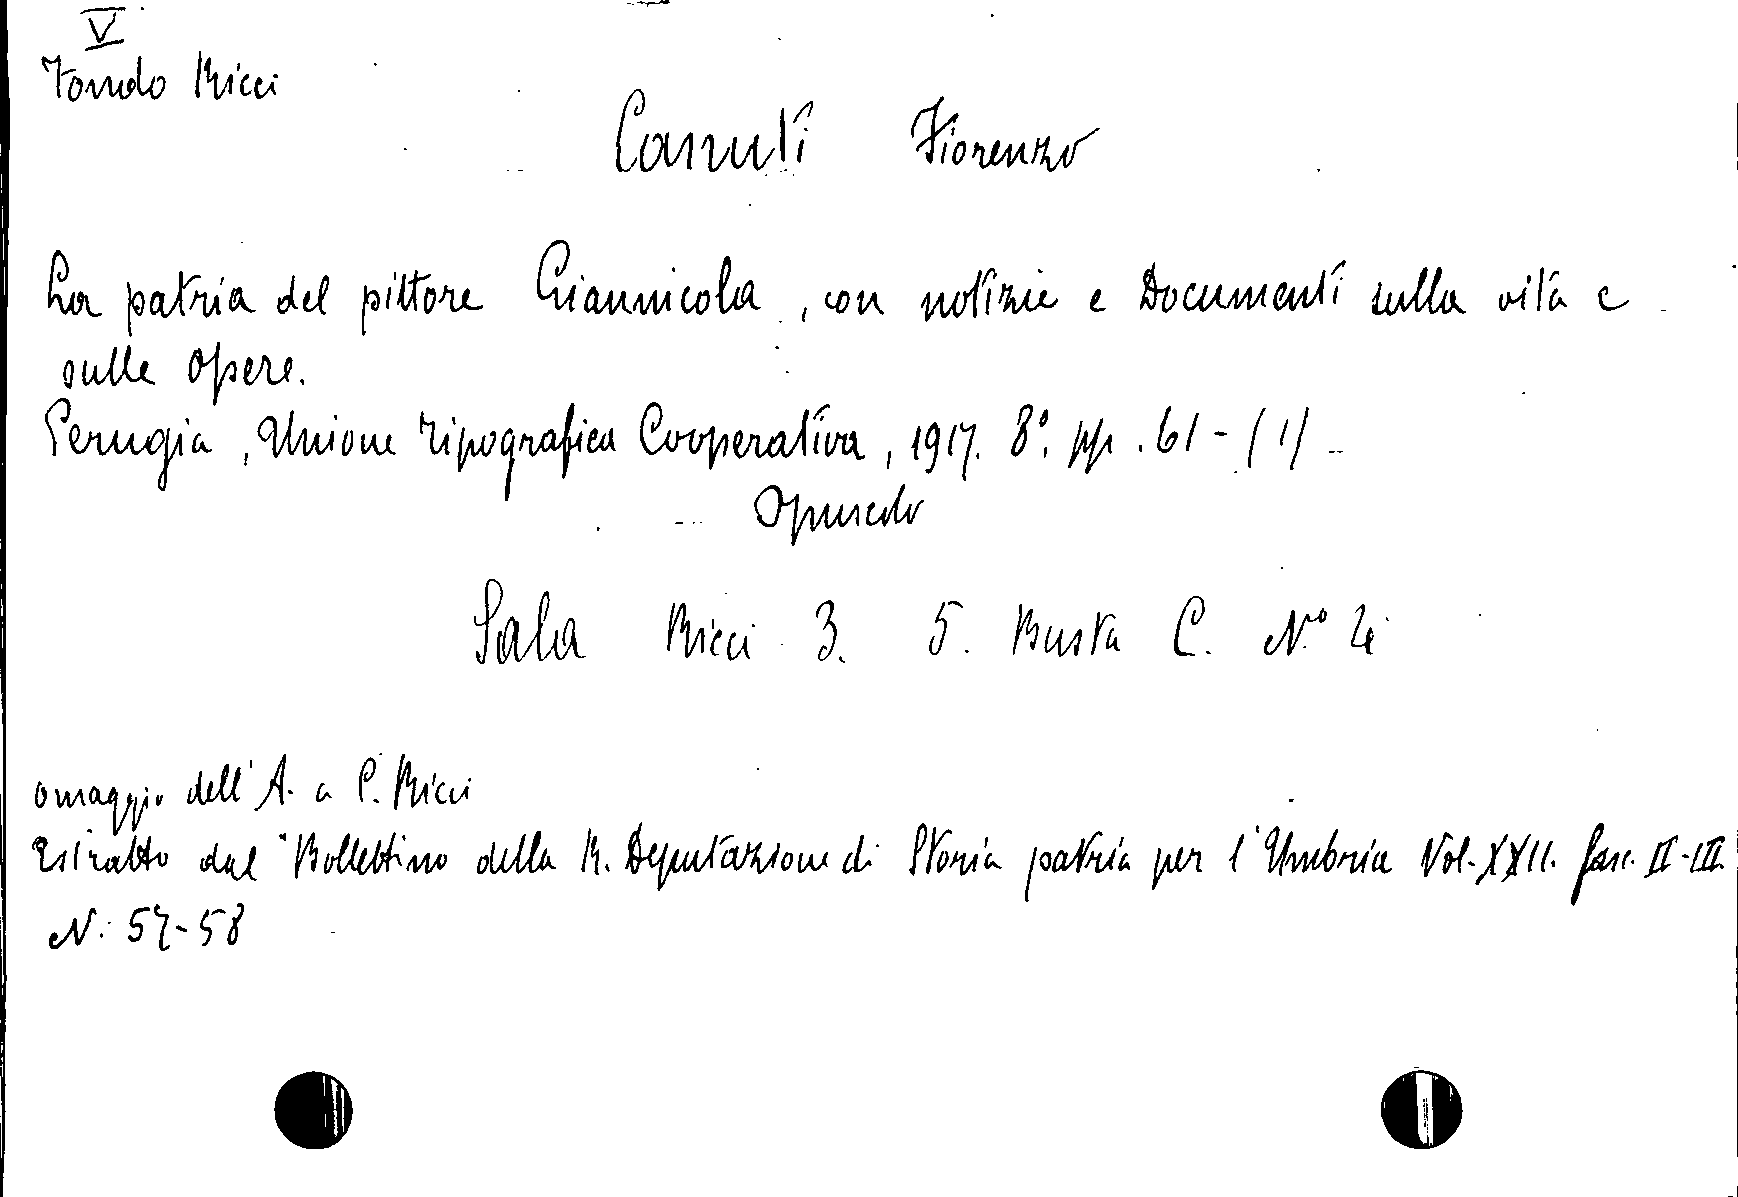 V
Fondo Ricci
Canuti Fiorenzo
La patria del pittore Giannicola, con notizie e Documenti sulla vita e
sulle opere.
Perugia, Unione Tipografica Cooperativa, 1917. 8°. pp. 61-(1)
Opuscolo
Sala Ricci 3. 5. Busta C. N° 4
omaggio dell'A. a C. Ricci
Estratto dal "Bollettino della R. Deputazione di Storia patria per l'Umbria Vol. XXII. fasc. II-III
N. 57-58